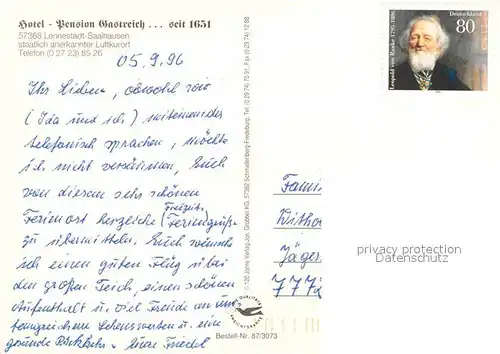 Hotel - Pension Gastreich ... seit 1651
57368 Lennestadt-Saalhausen
staatlich anerkannter Luftkurort
Telefon (0 27 23) 85 26
05.9.96
Ihr Lieben, obwohl wir
(Ida und ich) miteinander
telefonisch sprachen, möchte
ich nicht versäumen, Euch
von diesem sehr schönen
Freizeits-
Ferienort herzliche (Feriengrüße
zu übermitteln. Euch wünsche
ich einen guten Flug über
den großen Teich, einen schönen
Aufenthalt u. viel Freude an
Lebenswerten u. eine
gesunde Rückkehr. Eure Friedel
© 120 Jahre Verlag Jos. Grobbel KG, 57392 Schmallenberg-Fredeburg, Tel. (0 29 74) 70 91, Fax (0 29 74) 12 88
QUALITÄTS
Bestell-Nr. 87/3073
Leopold von Ranke 1795-1886
Deutschland
80
Famil
Withö
Jäger
7772
privacy protection
Datenschutz